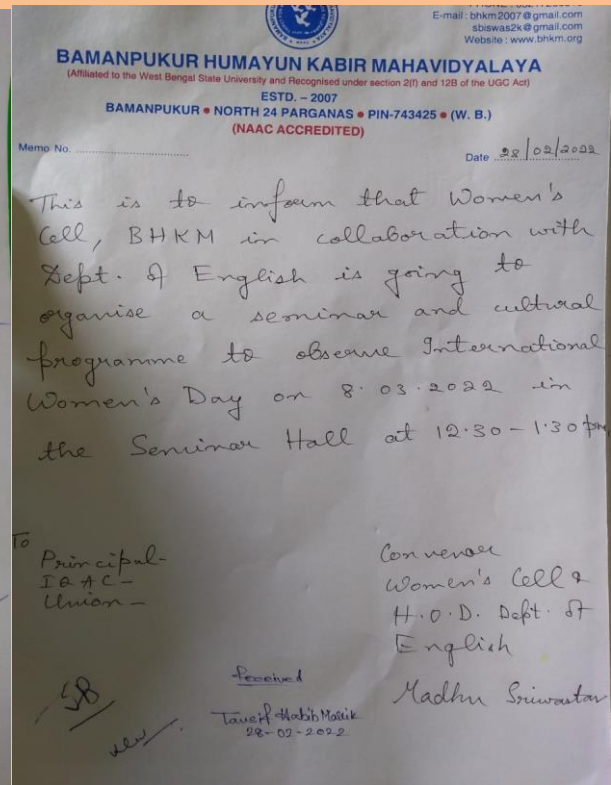 E-mail: bhkm2007@gmail.com
sbiswas2k@gmail.com
Website : www.bhkm.org
BAMANPUKUR HUMAYUN KABIR MAHAVIDYALAYA
(Affiliated to the West Bengal State University and Recognised under section 2(f) and 12B of the UGC Act)
ESTD. – 2007
BAMANPUKUR • NORTH 24 PARGANAS • PIN-743425 • (W. B.)
(NAAC ACCREDITED)
Memo No.
Date 28/02/2022
This is to inform that Women's
Cell, BHKM in collaboration with
Dept. of English is going to
organise a seminar and cultural
programme to observe International
Women's Day on 8.03.2022 in
the Seminar Hall at 12.30 – 1.30 pm
To
Principal-
IQAC-
Union-
Convenor
Women's Cell &
H.O.D. Dept. of
English
Madhu Srivastav
Received
Tauseif Habib Mallik
28-02-2022